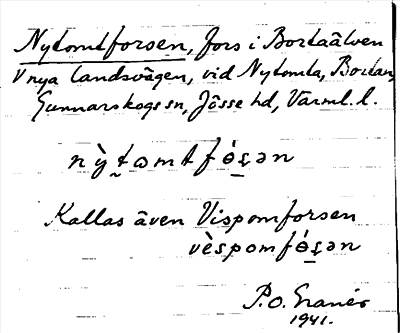 Nytomtforsen, fors i Bortaälven
V nya landsvägen, vid Nytomta, Bortan,
Gunnarskogs sn, Jösse hd, Värml. l.
nỳt̰ɷmtfȯ́ʂən
Kallas även Vispomforsen
vèspomfȯ́ʂən
P. O. Granér
1941.